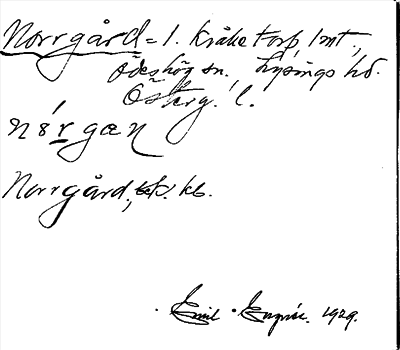 Norrgård = 1. Kråketorp, 1mt.,
Ödeshög sn. Lysings hd.
Österg. l.
nórgæn
Norrgård, kb.
Emil 1929.